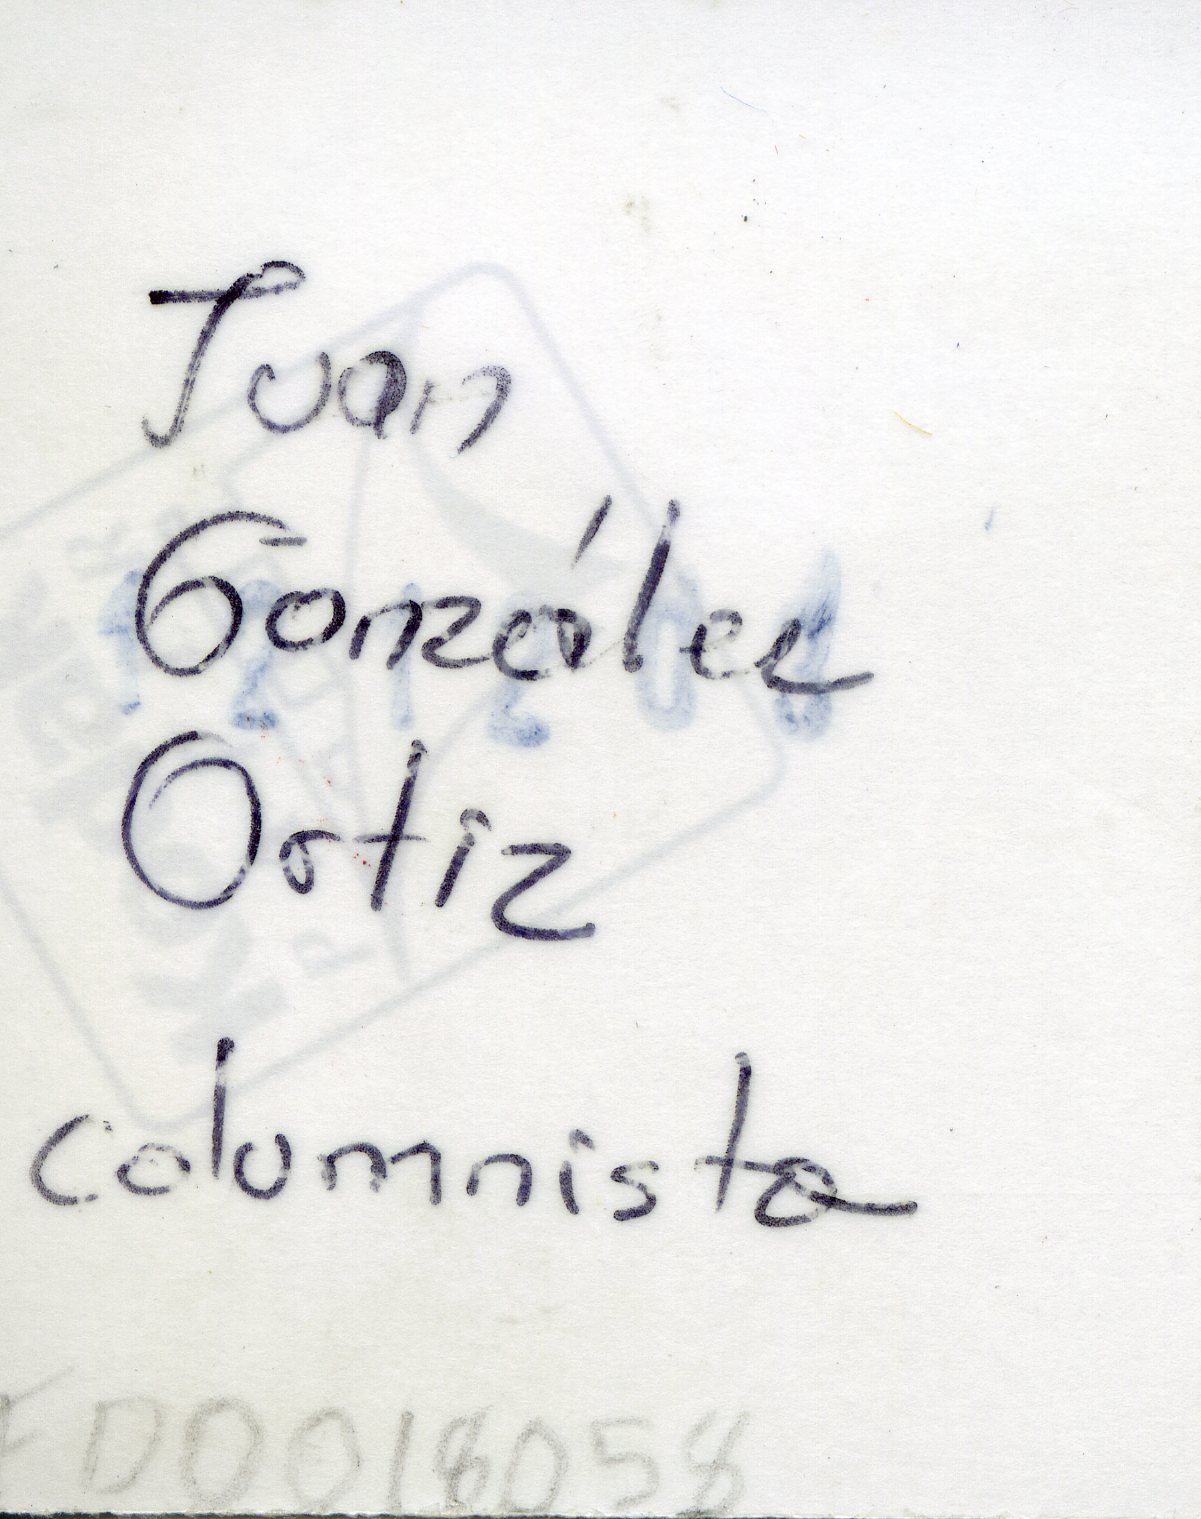 Juan
González
Ortiz
columnista
FD0018058